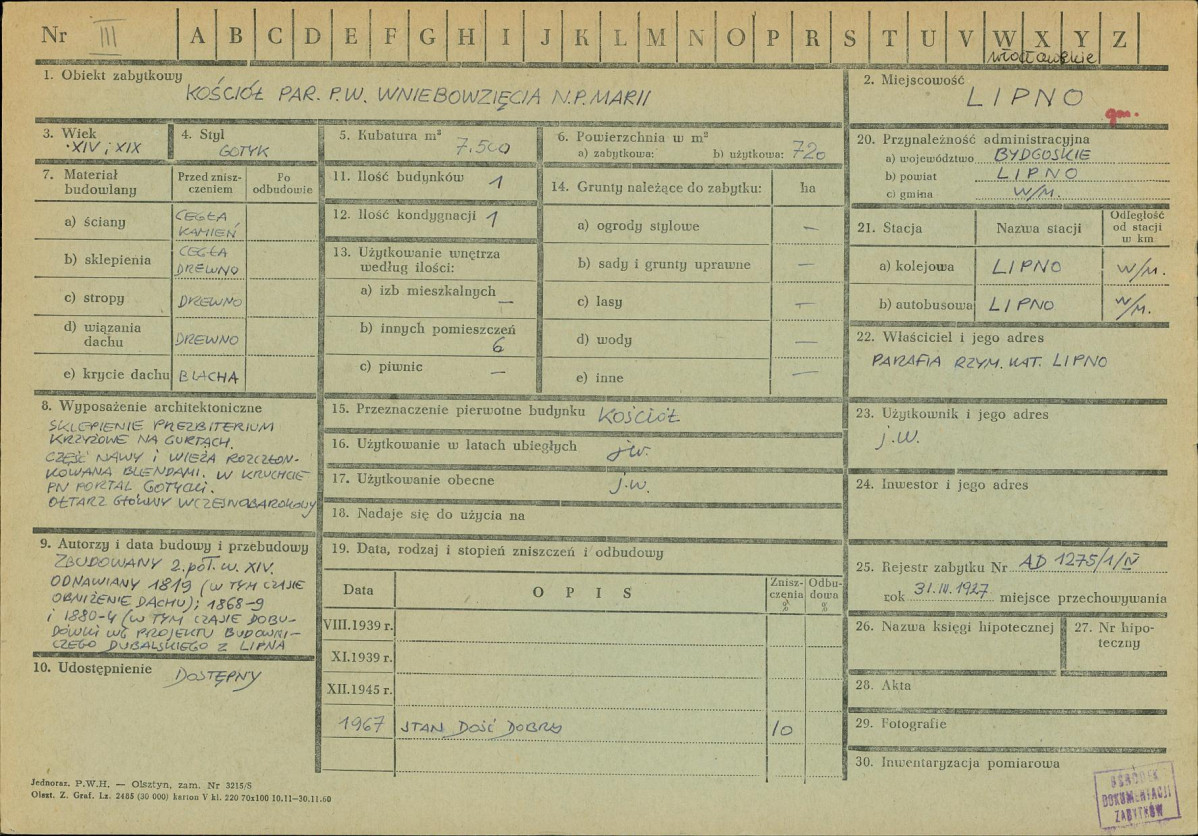 Nr III A B C D E F G H I J K L M N O P R S T U V W X Y Z
włocławskie
1. Obiekt zabytkowy
KOŚCIÓŁ PAR. P.W. WNIEBOWZIĘCIA N.P. MARII
2. Miejscowość
LIPNO
gm.
3. Wiek
XIV i XIX
4. Styl
GOTYK
5. Kubatura m³
7.500
6. Powierzchnia w m²
a) zabytkowa: b) użytkowa: 720
7. Materiał budowlany
Przed zniszczeniem
Po odbudowie
a) ściany CEGŁA KAMIEŃ
b) sklepienia CEGŁA DREWNO
c) stropy DREWNO
d) wiązania dachu DREWNO
e) krycie dachu BLACHA
11. Ilość budynków 1
12. Ilość kondygnacji 1
13. Użytkowanie wnętrza
według ilości:
a) izb mieszkalnych —
b) innych pomieszczeń 6
c) piwnic —
14. Grunty należące do zabytku: ha
a) ogrody stylowe —
b) sady i grunty uprawne —
c) lasy —
d) wody —
e) inne —
20. Przynależność administracyjna
a) województwo BYDGOSKIE
b) powiat LIPNO
c) gmina W/M.
21. Stacja Nazwa stacji Odległość od stacji w km
a) kolejowa LIPNO W/M.
b) autobusowa LIPNO W/M.
22. Właściciel i jego adres
PARAFIA RZYM. KAT. LIPNO
8. Wyposażenie architektoniczne
SKLEPIENIE PREZBITERIUM
KRZYŻOWE NA GURTACH.
CZĘŚĆ NAWY I WIEŻA ROZCZŁON-
KOWANA BLENDAMI. W KRUCHCIE
PN PORTAL GOTYCKI.
OŁTARZ GŁÓWNY WCZESNOBAROKOWY
15. Przeznaczenie pierwotne budynku KOŚCIÓŁ
16. Użytkowanie w latach ubiegłych j.w.
17. Użytkowanie obecne j.w.
18. Nadaje się do użycia na
19. Data, rodzaj i stopień zniszczeń i odbudowy
Data OPIS Zniszczenia % Odbudowa %
VIII.1939 r.
XI.1939 r.
XII.1945 r.
1967 STAN DOŚĆ DOBRY 10
23. Użytkownik i jego adres
j.w.
24. Inwestor i jego adres
25. Rejestr zabytku Nr AD 1275/1/IV
rok 31.III.1927 miejsce przechowywania
26. Nazwa księgi hipotecznej
27. Nr hipo-
teczny
28. Akta
29. Fotografie
30. Inwentaryzacja pomiarowa
9. Autorzy i data budowy i przebudowy
ZBUDOWANY 2. poł. w. XIV.
ODNAWIANY 1819 (W TYM CZASIE
OBNIŻENIE DACHU); 1868-9
i 1880-4 (W TYM CZASIE DOBU-
DÓWKI WG PROJEKTU BUDOWNI-
CZEGO DUBALSKIEGO Z LIPNA
10. Udostępnienie DOSTĘPNY
Jednoraz. P.W.H. — Olsztyn, zam. Nr 3215/S
Olszt. Z. Graf. Lz. 2485 (30 000) karton V kl. 220 70x100 10.11—30.11.60
OŚRODEK
DOKUMENTACJI
ZABYTKÓW